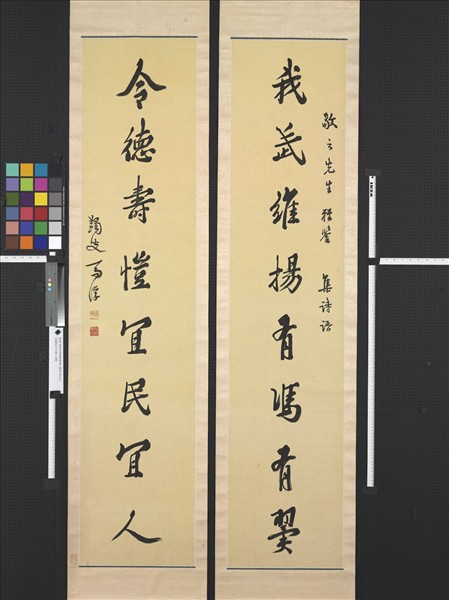 敬之先生雅鑒 集詩語
我武維揚有馮有翼
令德壽愷宜民宜人
蠲叟馬浮